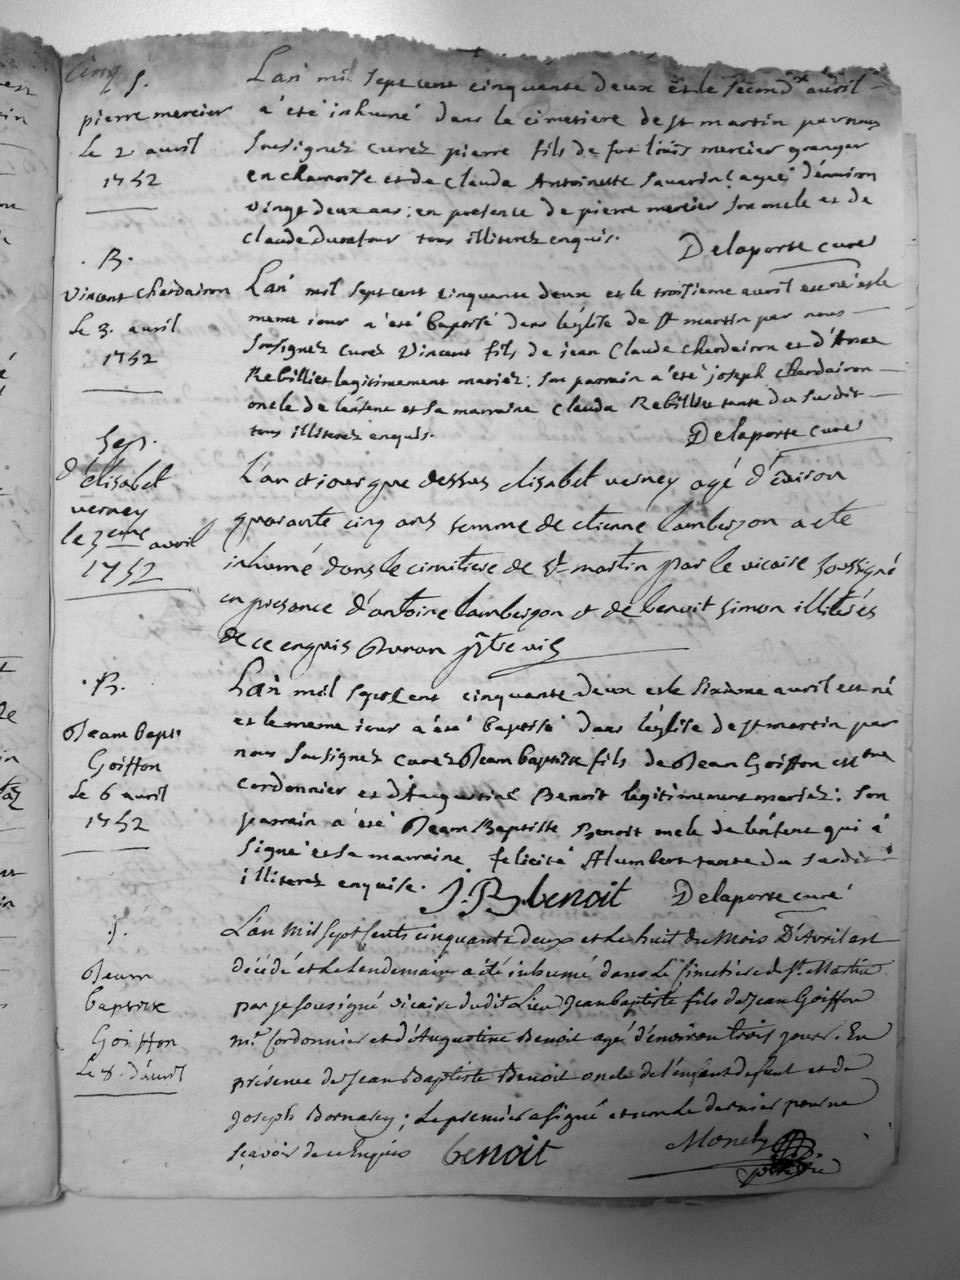 Cinq
S.
pierre mercier
Le 2 avril
1752
L'an mil sept cent cinquante deux et le second avril
a été inhumé dans le cimetiere de st martin par nous
soussignez curez pierre fils de fut loüis mercier granger
en et de Clauda Antoinette agee d'environ
vingt deux ans; en presence de pierre mercier son oncle et de
Claude tous illiterez enquis.
Delaporte curé
B.
Vincent Cherdairon
Le 3. avril
1752
L'an mil sept cent cinquante deux et le troisieme avril est né et le
meme iour a été baptisé dans l'église de st martin par nous
soussignez curez Vincent fils de jean Claude cherdairon et d'Anne
Rebillier legitimement mariez; son parrain a été joseph cherdairon
oncle de l'enfent et sa marraine Clauda Rebillier tante du susdit
tous illiterez enquis.
Delaporte curé
Sep.
d'élisabet
verney
le 3eme avril
1752
L'an et iour que dessus elisabet verney agé d'environ
quarante cinq ans femme de etienne lamberjon a eté
inhumé dans le cimitiere de St martin par le vicaire soussigné
en presance d'antoine lamberjon et de benoit simon illiterés
de ce enquis ptre vic
B.
Jean bapt
Goiffon
Le 6 avril
1752
L'an mil sept cent cinquante deux et le sixieme avril est né
et le meme iour a été baptisé dans l'église de st martin par
nous soussignez curez Jean baptiste fils de Jean Goiffon mtre
cordonnier et d'Augustine Benoit legitimement mariez: son
parrain a été Jean Baptiste Benoit oncle de l'enfent qui a
signé et sa marraine felicité Humbert tante du susdit
illiterez enquise.
J. B benoit
Delaporte curé
S.
Jean
baptiste
Goiffon
Le 8. d'avril
L'an mil sept sents cinquante deux et le huit du mois D'Avril est
décédé et le lendemain a été inhumé dans le simetiere de St. Martin
par je sousigné vicaire dudit Lieu Jean baptiste fils de Jean Goiffon
mr. Cordonnier et d'Augustine Benoit agé d'environ trois jours. En
présence de Jean Baptiste Benoit oncle de l'enfant defunt et de
Joseph Bornarey; Le premier a signé et non le dernier pour ne
sçavoir de ce Enquis
benoit